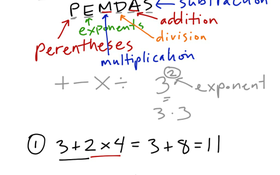 PEMDAS ← subtraction
exponents addition
Parentheses division
multiplication
+ − × ÷ 3² ← exponent
=
3·3
① 3+2×4 = 3+8=11